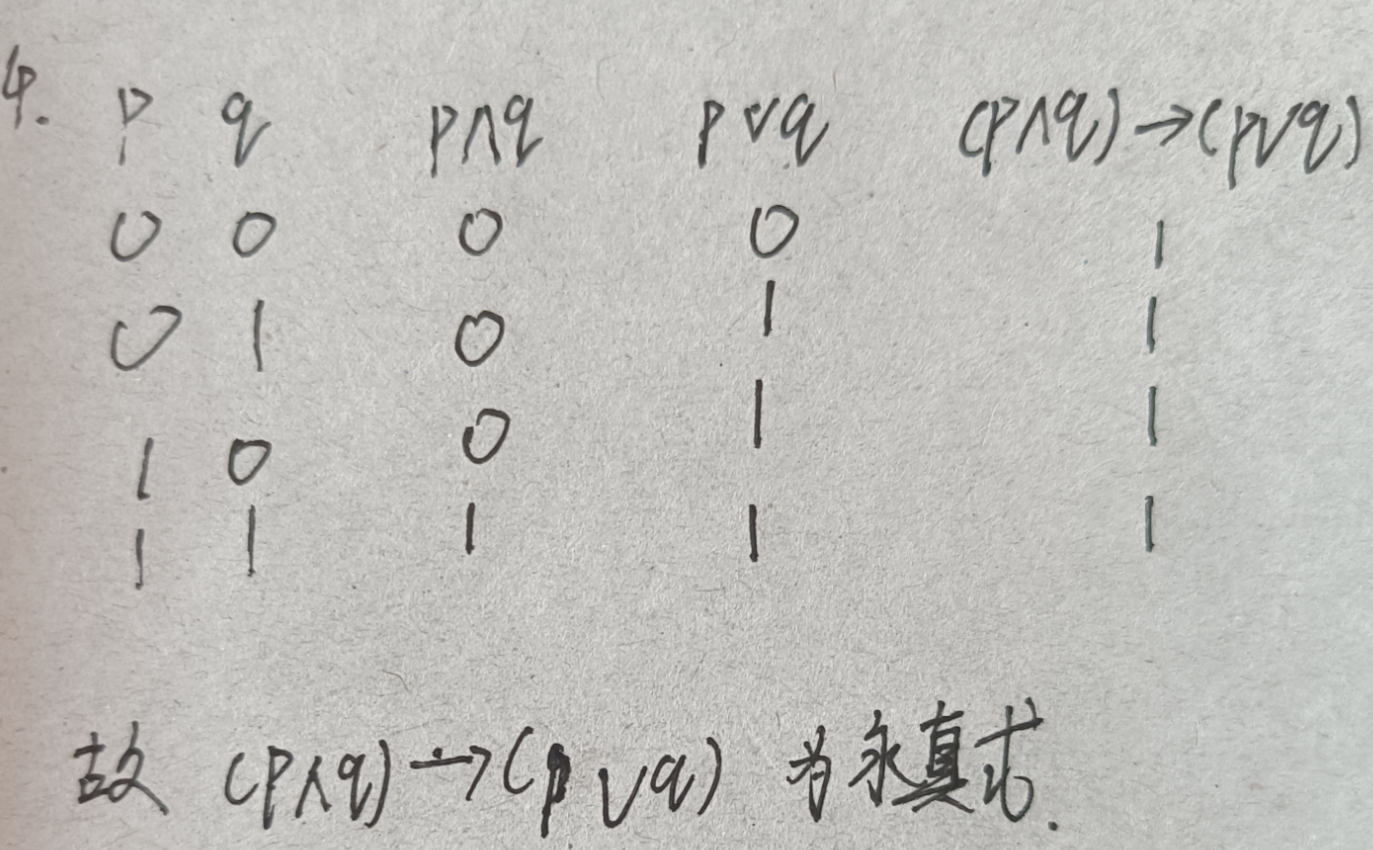 4. p q p∧q p∨q (p∧q)→(p∨q)
0 0 0 0 1
0 1 0 1 1
1 0 0 1 1
1 1 1 1 1
故 (p∧q)→(p∨q) 为永真式.